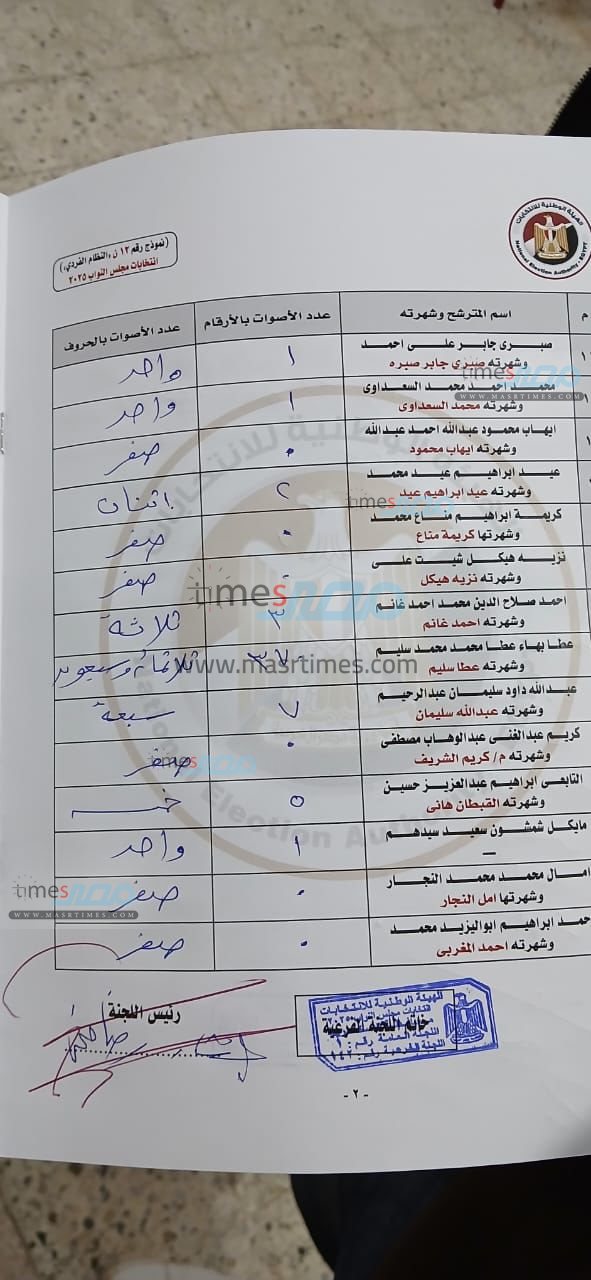 الهيئة الوطنية للانتخابات
National Election Authority - EGYPT
(نموذج رقم ١٢ ن «النظام الفردي»)
انتخابات مجلس النواب ٢٠٢٥
م اسم المترشح وشهرته عدد الأصوات بالأرقام عدد الأصوات بالحروف
صبرى جابر على احمد ١ واحد
وشهرته صبري جابر صبره
محمد احمد محمد السعداوى ١ واحد
وشهرته محمد السعداوى
ايهاب محمود عبدالله احمد عبدالله ٠ صفر
وشهرته ايهاب محمود
عيد ابراهيم عيد محمد ٢ اثنان
وشهرته عيد ابراهيم عيد
كريمة ابراهيم مناع محمد ٠ صفر
وشهرتها كريمة مناع
نزيه هيكل شيت على ٠ صفر
وشهرته نزيه هيكل
احمد صلاح الدين محمد احمد غانم ٣ ثلاثة
وشهرته احمد غانم
عطا بهاء عطا محمد محمد سليم
وشهرته عطا سليم
عبدالله داود سليمان عبدالرحيم ٧ سبعة
وشهرته عبدالله سليمان
كريم عبدالغنى عبدالوهاب مصطفى ٠ صفر
وشهرته م/ كريم الشريف
التابعى ابراهيم عبدالعزيز حسين ٥ خمسة
وشهرته القبطان هانى
مايكل شمشون سعيد سيدهم ١ واحد
—
امال محمد محمد النجار ٠ صفر
وشهرتها امل النجار
احمد ابراهيم ابواليزيد محمد ٠ صفر
وشهرته احمد المغربى
خاتم اللجنة الفرعية
رئيس اللجنة
الهيئة الوطنية للانتخابات
- ٢ -
National Election Authority
مصر times
WWW.MASRTIMES.COM
مصر times
مصر times
www.masrtimes.com
مصر times
مصر times
WWW.MASRTIMES.COM